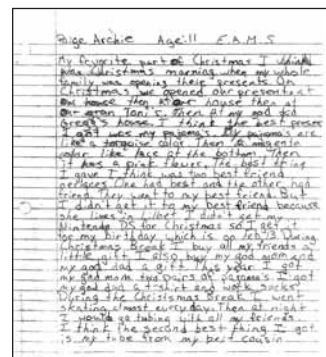 Paige Archie Age:11 E.A.M.S
My favorite part of Christmas I think
was Christmas morning when my whole
family was opening their presents. On
Christmas we opened our presents at
our house then at our house then at
our gran Toni's. Then at my god dad
Gregg's house. I think the best present
I got was my pajamas. My pajamas are
like a torquoise color. Then a magenta
color like lace at the bottom. Then
it has a pink flower. The best thing
I gave I think was two best friend
neclaces. One had best and the other had
friend. They went to my best friend. But
I didn't get it to my best friend because
she lives in I didn't get my
Nintendo DS for Christmas so I get
for my birthday which is on Feb. 13. During
Christmas Break I buy all my friends
little gift. I also buy my god mom and
my god dad a gift. This year I got
my god mom two pairs of pajama's. I got
my god dad a t-shirt and work socks.
During the Christsmas break I went
skating almost everyday. Then at night
I would go tubing with all my friends.
I think the second best thing I got
is my tube from my best cousin